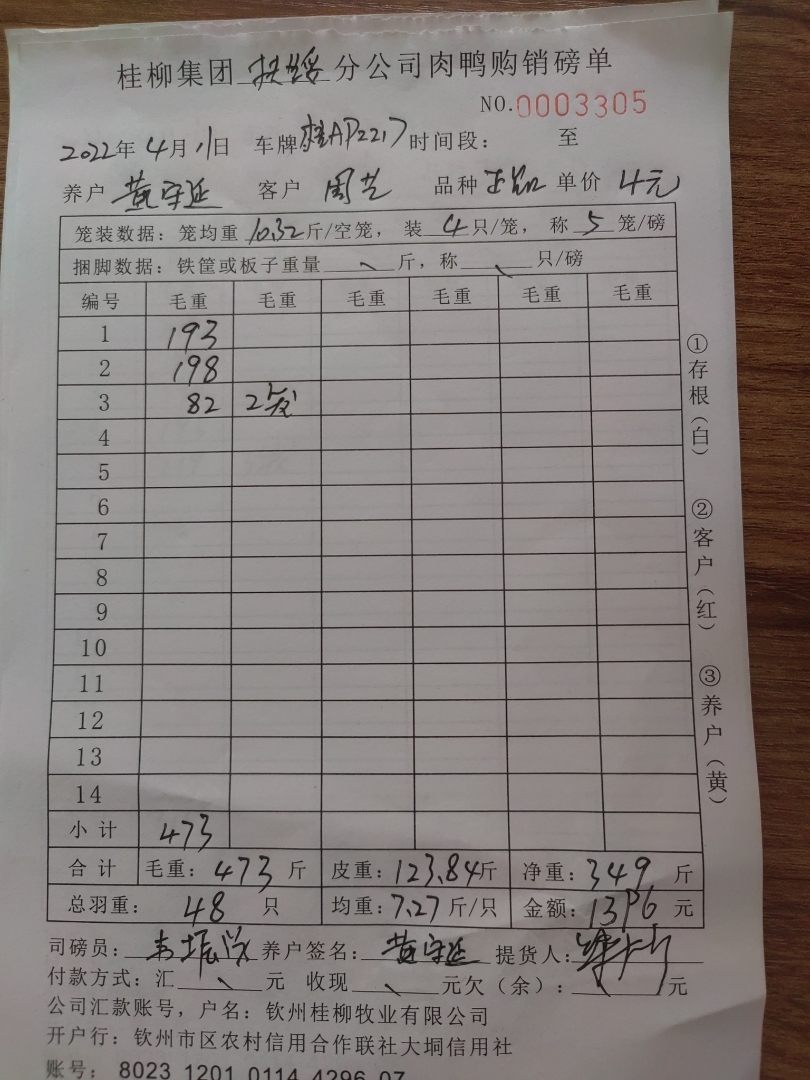 桂柳集团 扶绥 分公司肉鸭购销磅单
NO.0003305
2022年 4月 11日 车牌 桂AP2217 时间段： 至
养户 黄守延 客户 周艺 品种 正品 单价 4元
笼装数据：笼均重 10.32 斤/空笼，装 4 只/笼，称 5 笼/磅
捆脚数据：铁筐或板子重量 斤，称 只/磅
编号 毛重 毛重 毛重 毛重 毛重 毛重
1 193
2 198
3 82 2笼
4
5
6
7
8
9
10
11
12
13
14
小计 473
合计 毛重：473 斤 皮重：123.84斤 净重：349 斤
总羽重： 48 只 均重：7.27 斤/只 金额：1396 元
司磅员： 养户签名：黄守延 提货人：
付款方式：汇 元 收现 元欠（余）： 元
公司汇款账号，户名：钦州桂柳牧业有限公司
开户行：钦州市区农村信用合作联社大垌信用社
账号： 8023 1201 0114 4296 07
①存根（白）
②客户（红）
③养户（黄）